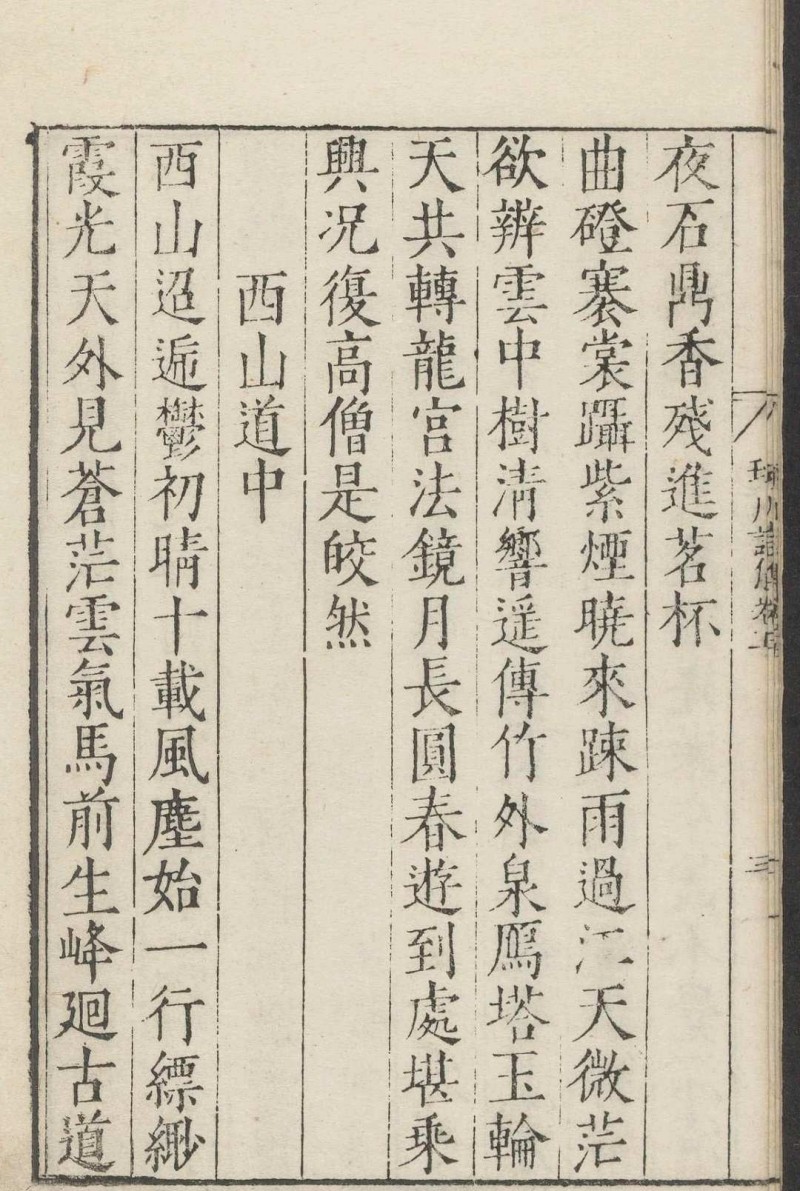 夜石鼎香殘進茗杯
曲磴褰裳躡紫煙曉來踈雨過江天微茫
欲辨雲中樹清響遥傳竹外泉鴈塔玉輪
天共轉龍宫法鏡月長圓春遊到處堪乘
興况復高僧是皎然
西山道中
西山迢遞鬱初晴十載風塵始一行縹緲
霞光天外見蒼茫雲氣馬前生峰廻古道
三